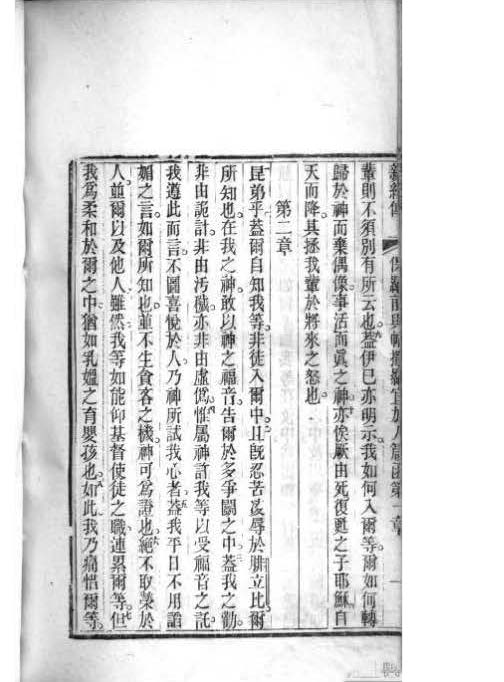 輩則不須別有所云也蓋伊已亦明示我如何入爾等爾如何轉
歸於神而棄偶像事活而眞之神亦俟厥由死復甦之子耶穌自
天而降其拯我輩於將來之怒也
第二章
昆弟乎蓋爾自知我等非徒入爾中且既忍苦羞辱於腓立比爾
所知也在我之神敢以神之福音告爾於多爭鬬之中蓋我之勸
非由詭計非由汚穢亦非由虛僞惟屬神許我等以受福音之託
我遵此而言不圖喜悅於人乃神所試我心者蓋我平日不用諂
媚之言如爾所知也並不生貪客之機神可爲證也絕不取榮於
人並爾以及他人雖然我等如能仰基督使徒之職連累爾等但
我爲柔和於爾之中猶如乳媼之育嬰孩也如此我乃痛惜爾等